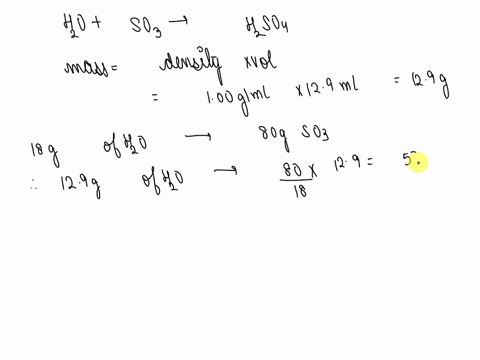 H₂O + SO₃ → H₂SO₄
mass = density × vol
= 1.00 g/ml × 12.9 ml = 12.9 g
18 g of H₂O → 80g SO₃
∴ 12.9 g of H₂O → 80/18 × 12.9 = 5